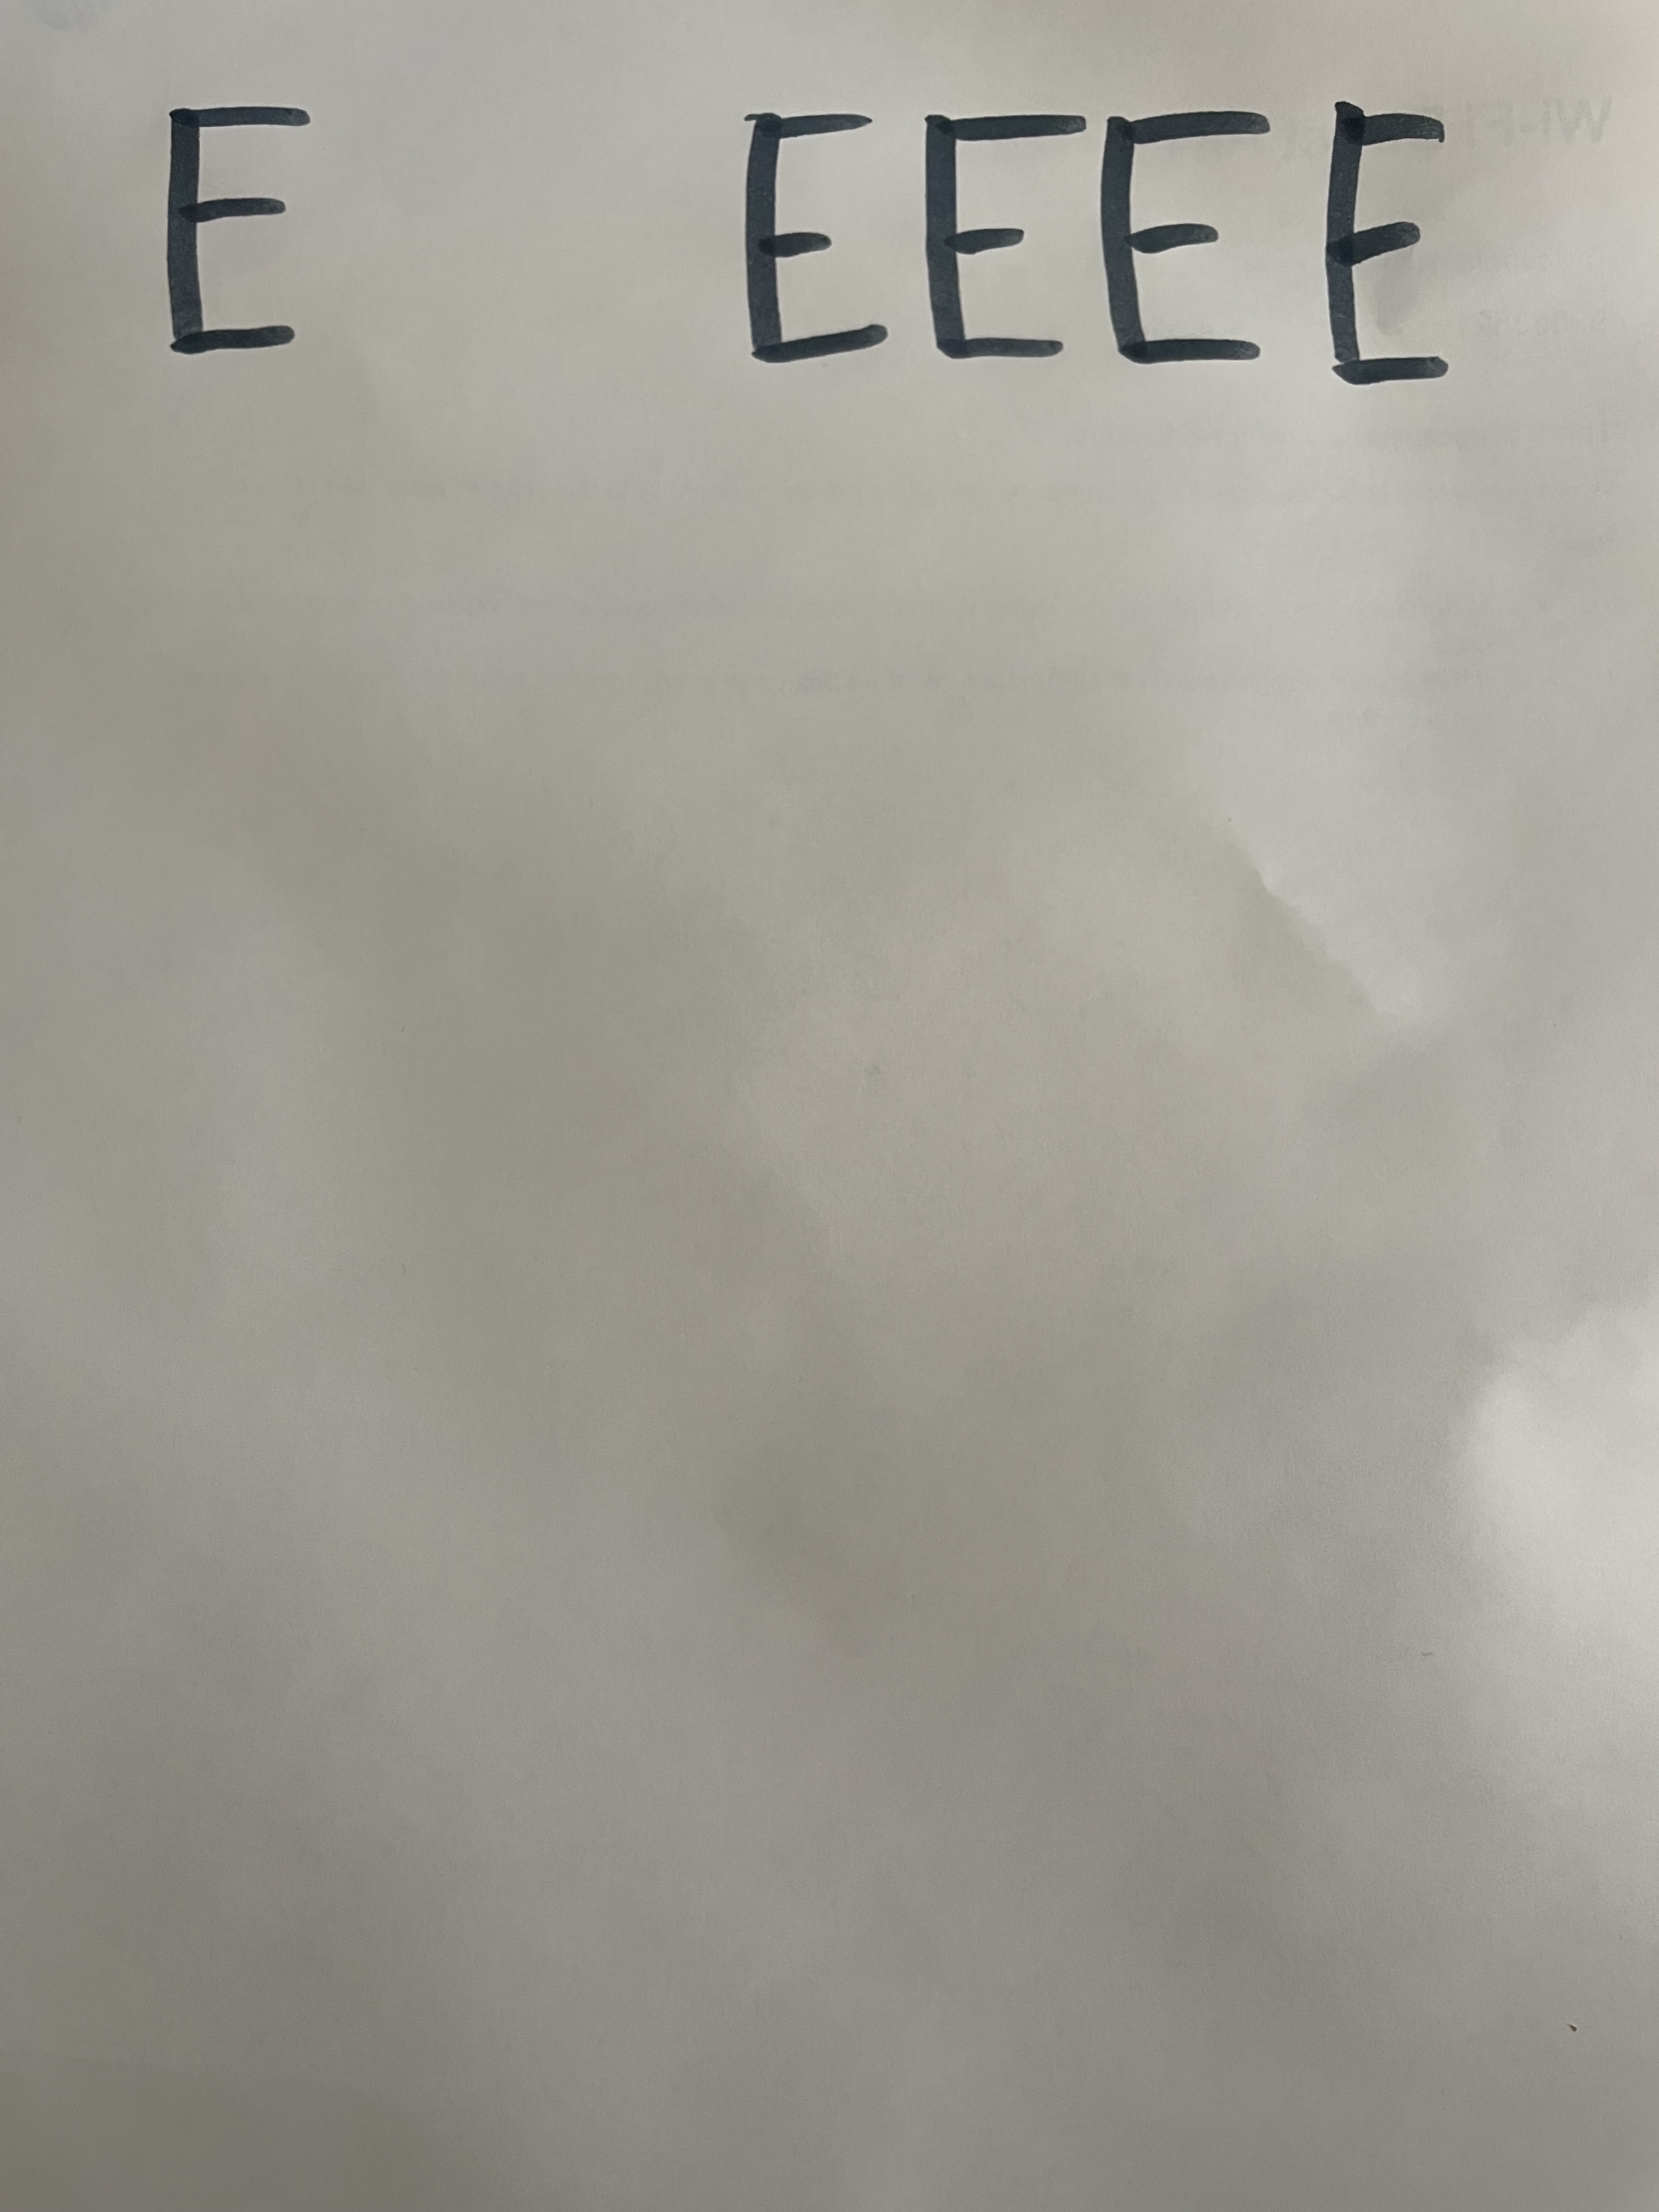 E EEEE